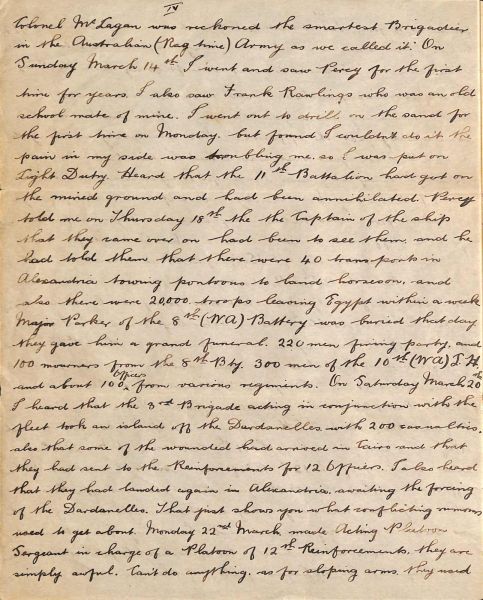 IV
Colonel McLagan was reckoned the smartest Brigadier
in the Australian (Rag time) Army as we called it. On
Sunday March 14th I went and saw Percy for the first
time for years. I also saw Frank Rawlings who was an old
school mate of mine. I went out to drill on the sand for
the first time on Monday. but found I couldn't do it the
pain in my side was troubling me. so I was put on
Light Duty. Heard that the 11th Battalion had got on
the mined ground and had been annihilated. Percy
told me on Thursday 18th the the Captain of the ship
that they came over on had been to see them. and he
had told them that there were 40 transports in
Alexandria towing pontoons to land horses on, and
also there were 20,000 troops leaving Egypt within a week
Major Parker of the 8th (WA) Battery was buried that day
they gave him a grand funeral. 220 men firing party. and
100 mourners from the 8th Bty. 300 men of the 10th (WA) L.H
and about 100 Officers from various regiments. On Saturday March 20th
I heard that the 3rd Brigade acting in conjunction with the
fleet took an island off the Dardanelles with 200 casualties.
also that some of the wounded had arrived in Cairo and that
they had sent to the Reinforcements for 12 Officers. I also heard
that they had landed again in Alexandria. awaiting the forcing
of the Dardanelles. That just shows you what conflicting rumours
used to get about. Monday 22nd March. made Acting Platoon
Sergeant in charge of a Platoon of 12th Reinforcements. they are
simply awful. Can't do anything. as for sloping arms. they used